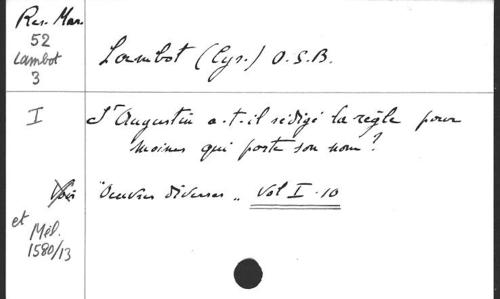 Res. Mar.
52
Lambot
3
Lambot (Cyr.) O.S.B.
I
St Augustin a-t-il rédigé la règle pour
moines qui porte son nom?
Voir "Oeuvres diverses" Vol I-10
et Mél.
1580/13